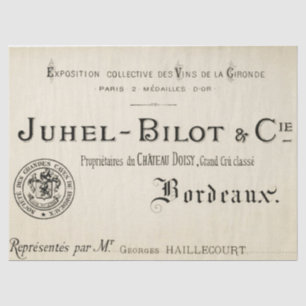 EXPOSITION COLLECTIVE DES VINS DE LA GIRONDE
PARIS 2 MÉDAILLES D'OR
JUHEL-BILOT & CIE
Propriétaires du CHÂTEAU DOISY, Grand Crû classé
Bordeaux.
SOCIÉTÉ DES GRANDES CAVES DE BORDEAUX
Représentés par Mr GEORGES HAILLECOURT